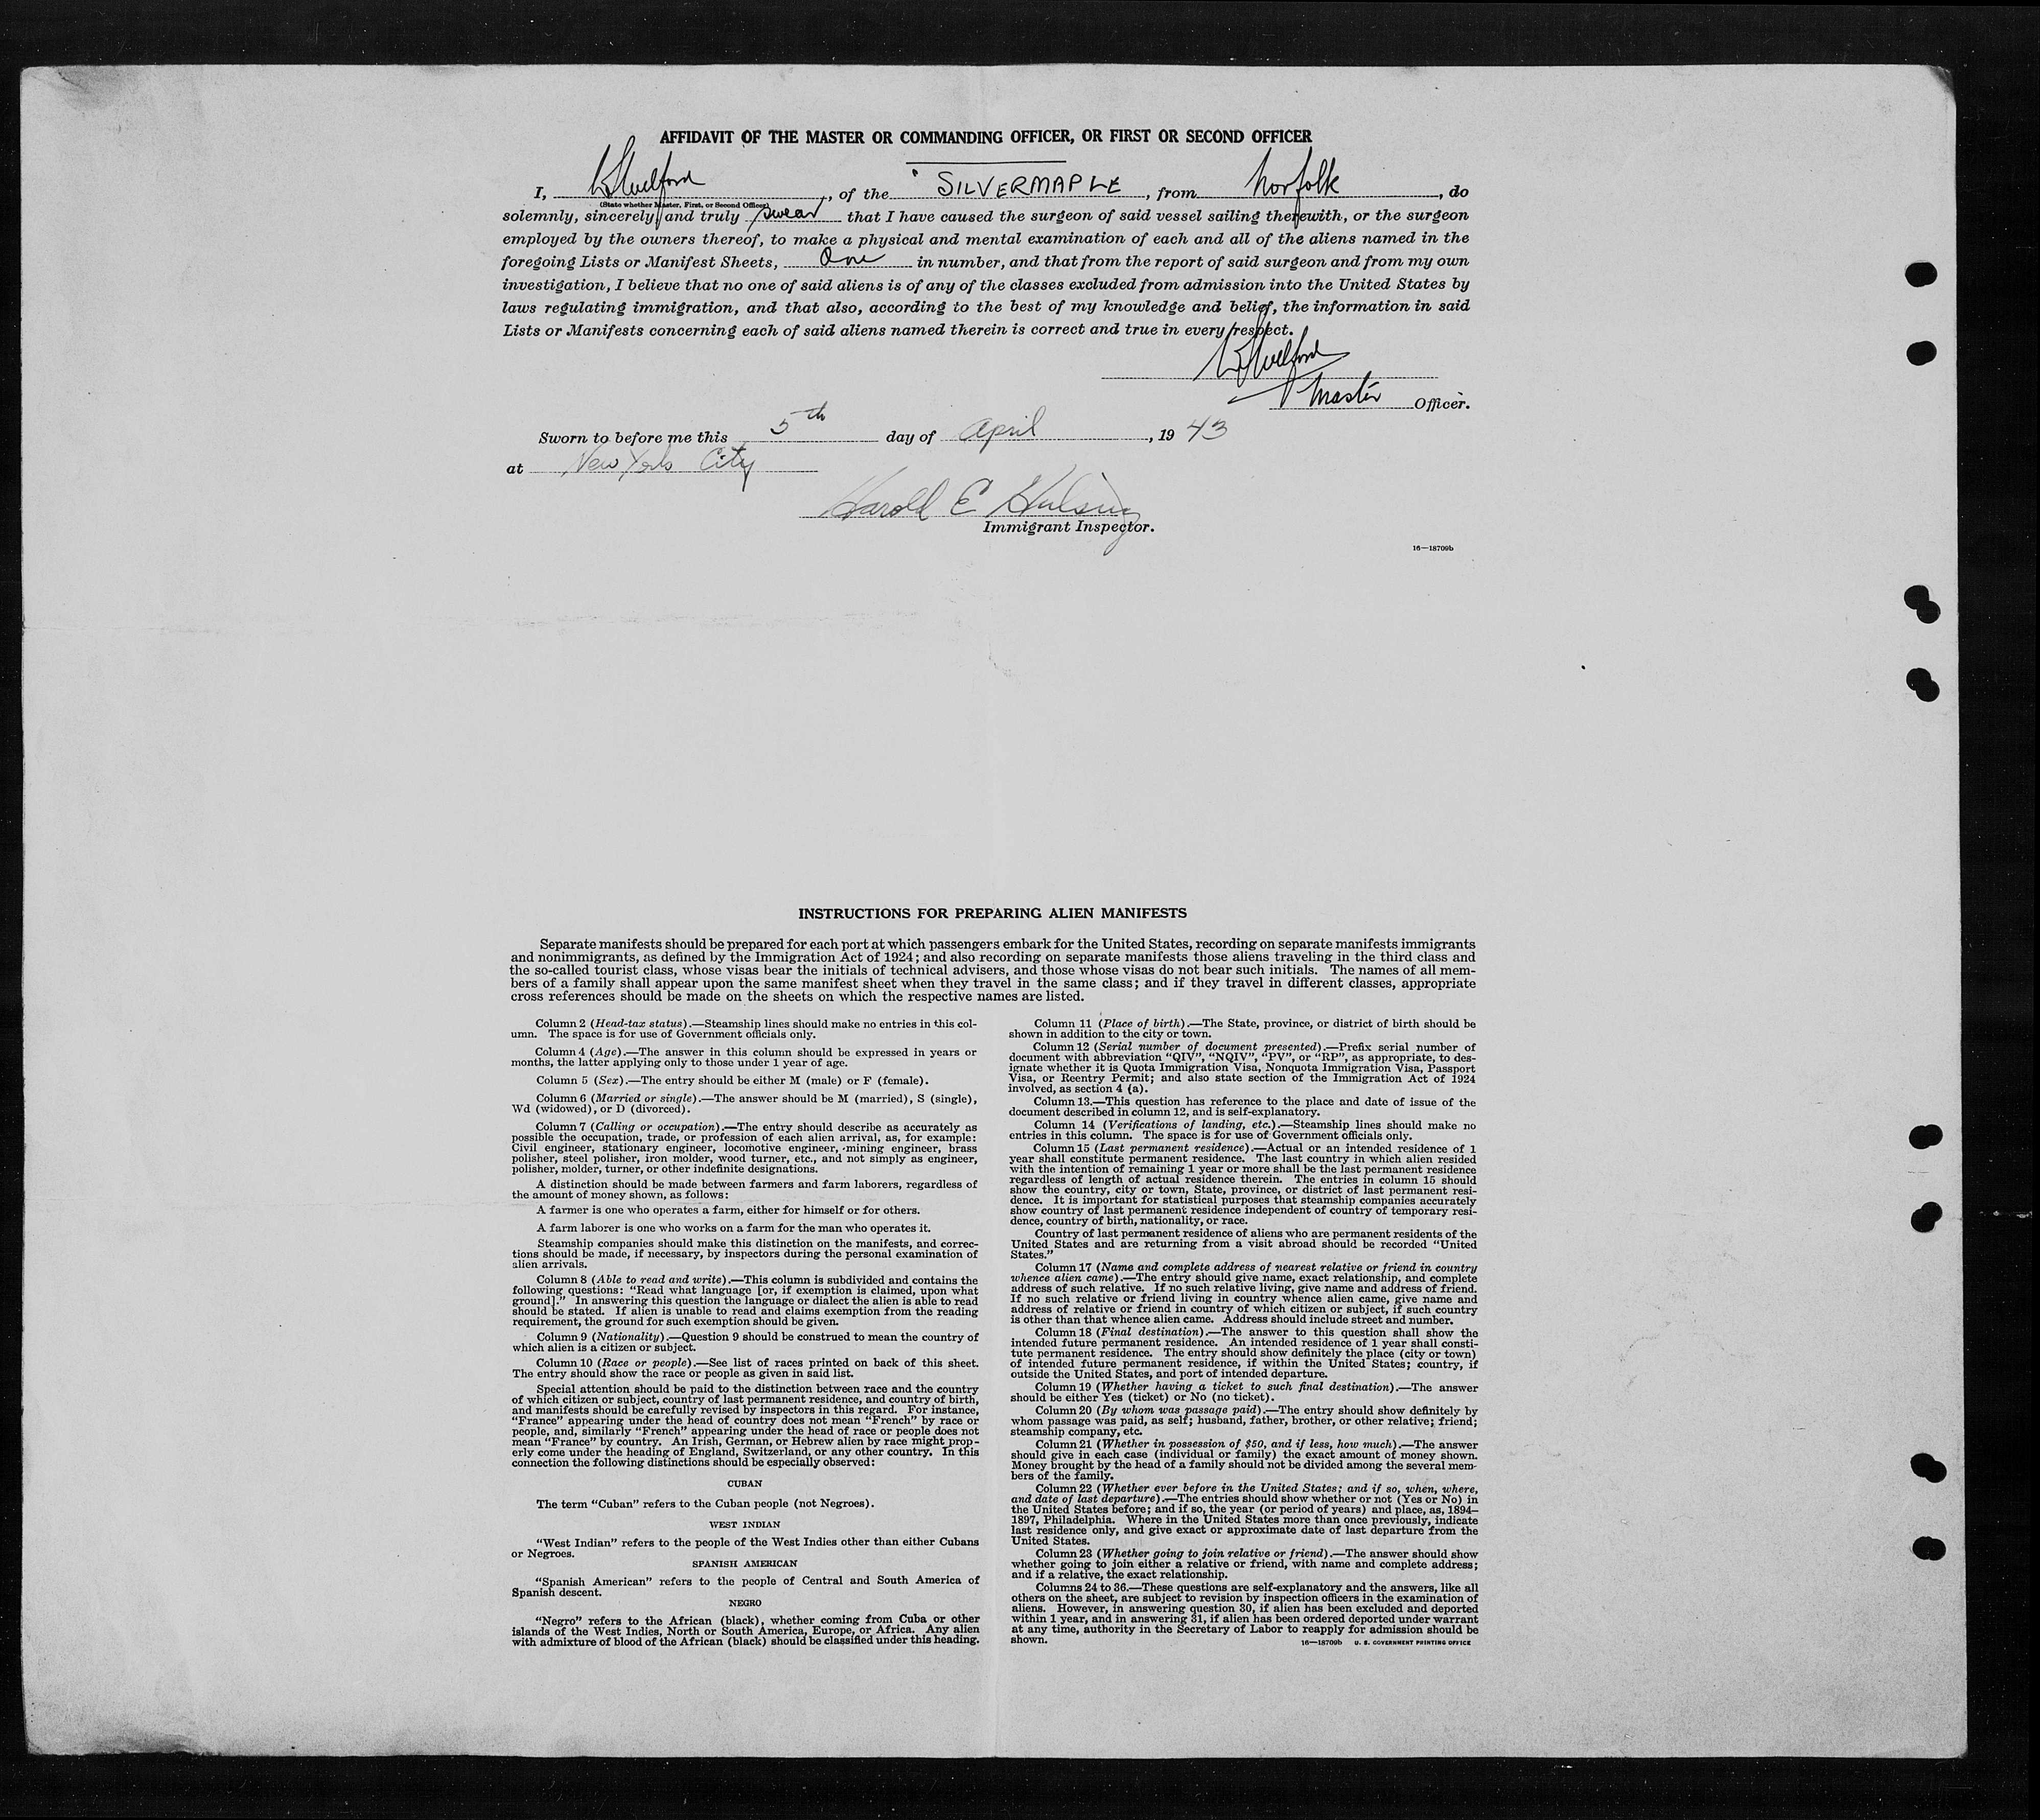 AFFIDAVIT OF THE MASTER OR COMMANDING OFFICER, OR FIRST OR SECOND OFFICER
I, , of the "SILVERMAPLE, from Norfolk, do
(State whether Master, First, or Second Officer)
solemnly, sincerely, and truly swear that I have caused the surgeon of said vessel sailing therewith, or the surgeon
employed by the owners thereof, to make a physical and mental examination of each and all of the aliens named in the
foregoing Lists or Manifest Sheets, One in number, and that from the report of said surgeon and from my own
investigation, I believe that no one of said aliens is of any of the classes excluded from admission into the United States by
laws regulating immigration, and that also, according to the best of my knowledge and belief, the information in said
Lists or Manifests concerning each of said aliens named therein is correct and true in every respect.
Master Officer.
Sworn to before me this 5th day of April, 1943
at New York City
Harold E
Immigrant Inspector.
16—18709b
INSTRUCTIONS FOR PREPARING ALIEN MANIFESTS
Separate manifests should be prepared for each port at which passengers embark for the United States, recording on separate manifests immigrants
and nonimmigrants, as defined by the Immigration Act of 1924; and also recording on separate manifests those aliens traveling in the third class and
the so-called tourist class, whose visas bear the initials of technical advisers, and those whose visas do not bear such initials. The names of all mem-
bers of a family shall appear upon the same manifest sheet when they travel in the same class; and if they travel in different classes, appropriate
cross references should be made on the sheets on which the respective names are listed.
Column 2 (Head-tax status).—Steamship lines should make no entries in this col-
umn. The space is for use of Government officials only.
Column 4 (Age).—The answer in this column should be expressed in years or
months, the latter applying only to those under 1 year of age.
Column 5 (Sex).—The entry should be either M (male) or F (female).
Column 6 (Married or single).—The answer should be M (married), S (single),
Wd (widowed), or D (divorced).
Column 7 (Calling or occupation).—The entry should describe as accurately as
possible the occupation, trade, or profession of each alien arrival, as, for example:
Civil engineer, stationary engineer, locomotive engineer, mining engineer, brass
polisher, steel polisher, iron molder, wood turner, etc., and not simply as engineer,
polisher, molder, turner, or other indefinite designations.
A distinction should be made between farmers and farm laborers, regardless of
the amount of money shown, as follows:
A farmer is one who operates a farm, either for himself or for others.
A farm laborer is one who works on a farm for the man who operates it.
Steamship companies should make this distinction on the manifests, and correc-
tions should be made, if necessary, by inspectors during the personal examination of
alien arrivals.
Column 8 (Able to read and write).—This column is subdivided and contains the
following questions: "Read what language [or, if exemption is claimed, upon what
ground]." In answering this question the language or dialect the alien is able to read
should be stated. If alien is unable to read and claims exemption from the reading
requirement, the ground for such exemption should be given.
Column 9 (Nationality).—Question 9 should be construed to mean the country of
which alien is a citizen or subject.
Column 10 (Race or people).—See list of races printed on back of this sheet.
The entry should show the race or people as given in said list.
Special attention should be paid to the distinction between race and the country
of which citizen or subject, country of last permanent residence, and country of birth,
and manifests should be carefully revised by inspectors in this regard. For instance,
"France" appearing under the head of country does not mean "French" by race or
people, and, similarly "French" appearing under the head of race or people does not
mean "France" by country. An Irish, German, or Hebrew alien by race might prop-
erly come under the heading of England, Switzerland, or any other country. In this
connection the following distinctions should be especially observed:
CUBAN
The term "Cuban" refers to the Cuban people (not Negroes).
WEST INDIAN
"West Indian" refers to the people of the West Indies other than either Cubans
or Negroes.
SPANISH AMERICAN
"Spanish American" refers to the people of Central and South America of
Spanish descent.
NEGRO
"Negro" refers to the African (black), whether coming from Cuba or other
islands of the West Indies, North or South America, Europe, or Africa. Any alien
with admixture of blood of the African (black) should be classified under this heading.
Column 11 (Place of birth).—The State, province, or district of birth should be
shown in addition to the city or town.
Column 12 (Serial number of document presented).—Prefix serial number of
document with abbreviation "QIV", "NQIV", "PV", or "RP", as appropriate, to des-
ignate whether it is Quota Immigration Visa, Nonquota Immigration Visa, Passport
Visa, or Reentry Permit; and also state section of the Immigration Act of 1924
involved, as section 4 (a).
Column 13.—This question has reference to the place and date of issue of the
document described in column 12, and is self-explanatory.
Column 14 (Verifications of landing, etc.).—Steamship lines should make no
entries in this column. The space is for use of Government officials only.
Column 15 (Last permanent residence).—Actual or an intended residence of 1
year shall constitute permanent residence. The last country in which alien resided
with the intention of remaining 1 year or more shall be the last permanent residence
regardless of length of actual residence therein. The entries in column 15 should
show the country, city or town, State, province, or district of last permanent resi-
dence. It is important for statistical purposes that steamship companies accurately
show country of last permanent residence independent of country of temporary resi-
dence, country of birth, nationality, or race.
Country of last permanent residence of aliens who are permanent residents of the
United States and are returning from a visit abroad should be recorded "United
States."
Column 17 (Name and complete address of nearest relative or friend in country
whence alien came).—The entry should give name, exact relationship, and complete
address of such relative. If no such relative living, give name and address of friend.
If no such relative or friend living in country whence alien came, give name and
address of relative or friend in country of which citizen or subject, if such country
is other than that whence alien came. Address should include street and number.
Column 18 (Final destination).—The answer to this question shall show the
intended future permanent residence. An intended residence of 1 year shall consti-
tute permanent residence. The entry should show definitely the place (city or town)
of intended future permanent residence, if within the United States; country, if
outside the United States, and port of intended departure.
Column 19 (Whether having a ticket to such final destination).—The answer
should be either Yes (ticket) or No (no ticket).
Column 20 (By whom was passage paid).—The entry should show definitely by
whom passage was paid, as self; husband, father, brother, or other relative; friend;
steamship company, etc.
Column 21 (Whether in possession of $50, and if less, how much).—The answer
should give in each case (individual or family) the exact amount of money shown.
Money brought by the head of a family should not be divided among the several mem-
bers of the family.
Column 22 (Whether ever before in the United States; and if so, when, where,
and date of last departure).—The entries should show whether or not (Yes or No) in
the United States before; and if so, the year (or period of years) and place, as, 1894–
1897, Philadelphia. Where in the United States more than once previously, indicate
last residence only, and give exact or approximate date of last departure from the
United States.
Column 23 (Whether going to join relative or friend).—The answer should show
whether going to join either a relative or friend, with name and complete address;
and if a relative, the exact relationship.
Columns 24 to 36.—These questions are self-explanatory and the answers, like all
others on the sheet, are subject to revision by inspection officers in the examination of
aliens. However, in answering question 30, if alien has been excluded and deported
within 1 year, and in answering 31, if alien has been ordered deported under warrant
at any time, authority in the Secretary of Labor to reapply for admission should be
shown.
16—18709b U. S. GOVERNMENT PRINTING OFFICE